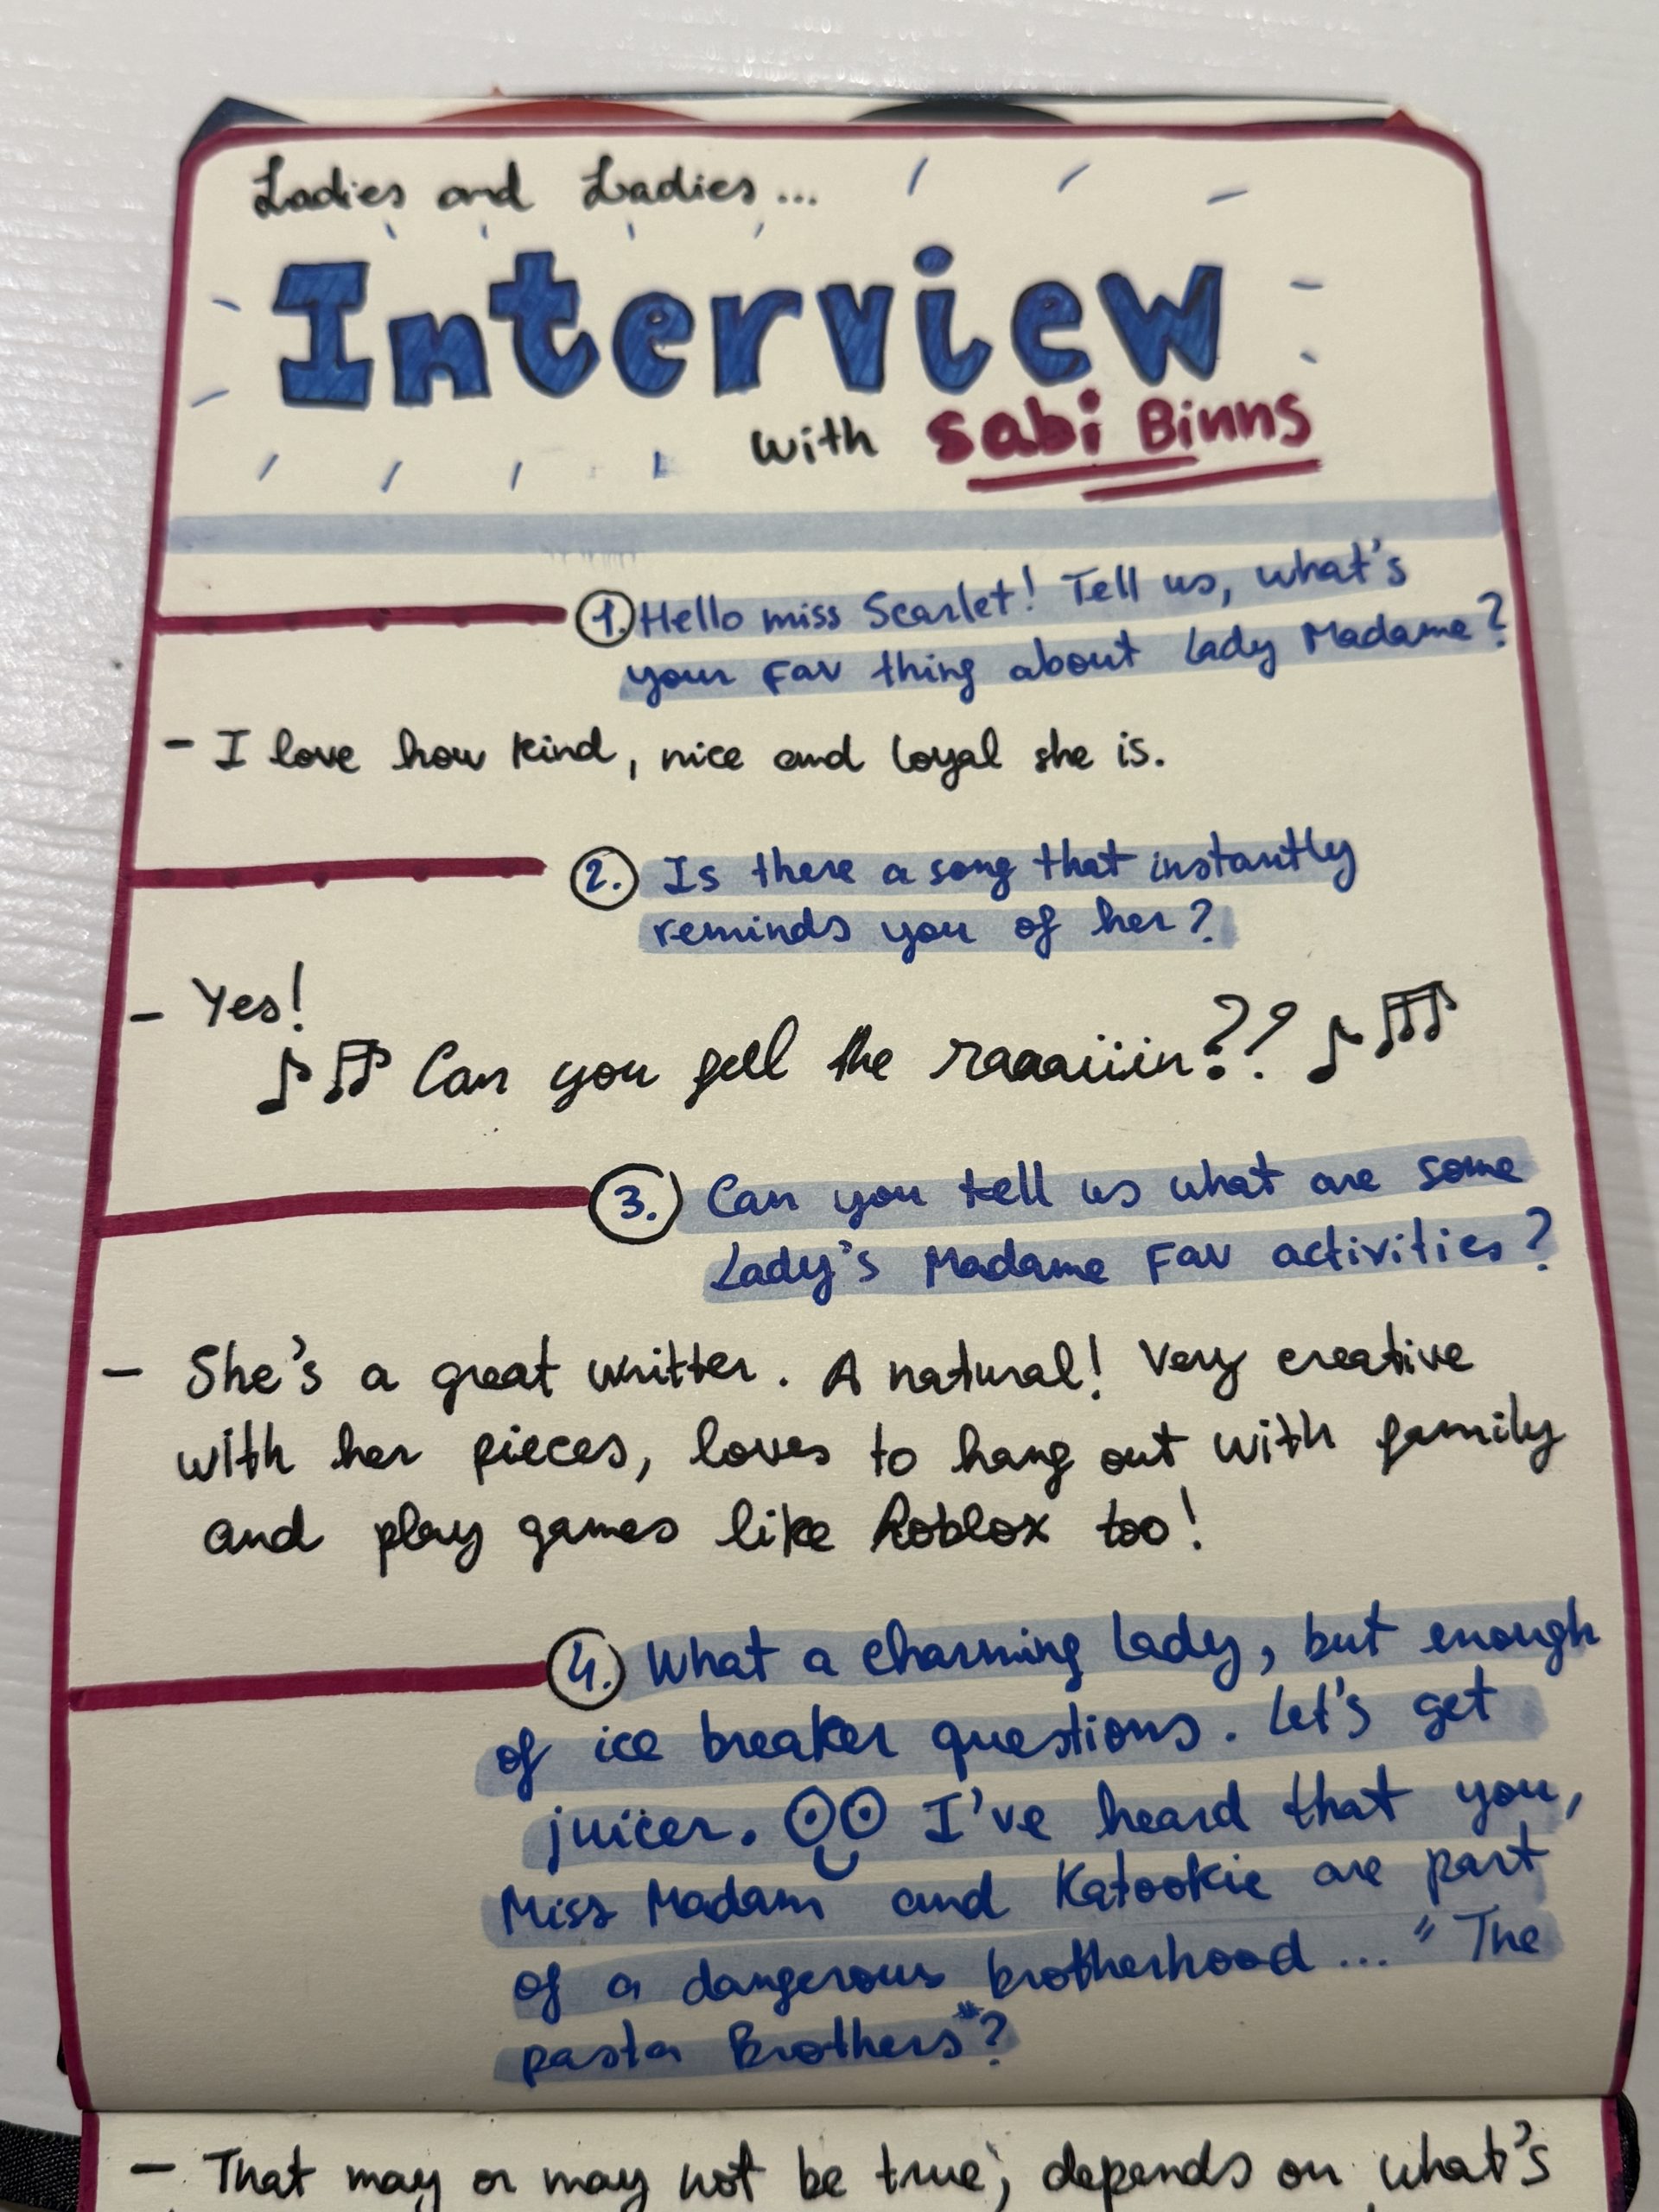 Ladies and Ladies...
Interview
with Sabi Binns
1. Hello miss Scarlet! Tell us, what's
your Fav thing about Lady Madame?
- I love how kind, nice and loyal she is.
2. Is there a song that instantly
reminds you of her?
- Yes!
Can you feel the raaaiiin??
3. Can you tell us what are some
Lady's Madame Fav activities?
- She's a great writter. A natural! Very creative
with her pieces, loves to hang out with family
and play games like Roblox too!
4. What a charming lady, but enough
of ice breaker questions. Let's get
juicer. I've heard that you,
Miss Madam and Katookie are part
of a dangerous brotherhood... "The
pasta Brothers"?
- That may or may not be true, depends on what's